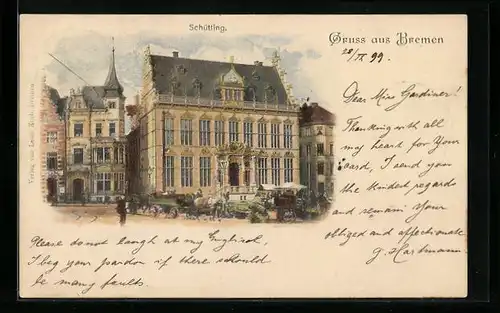 Schütting.
Gruss aus Bremen
28/IX 99.
Dear Miss Gardiner!
Thanking with all
my heart for Your
card, I send you
the kindest regards
and remain Your
obliged and affectionate
G. Hartmann.
Please do not laugh at my English,
I beg your pardon if there should
be many faults.
Verlag von Louis Koch, Bremen